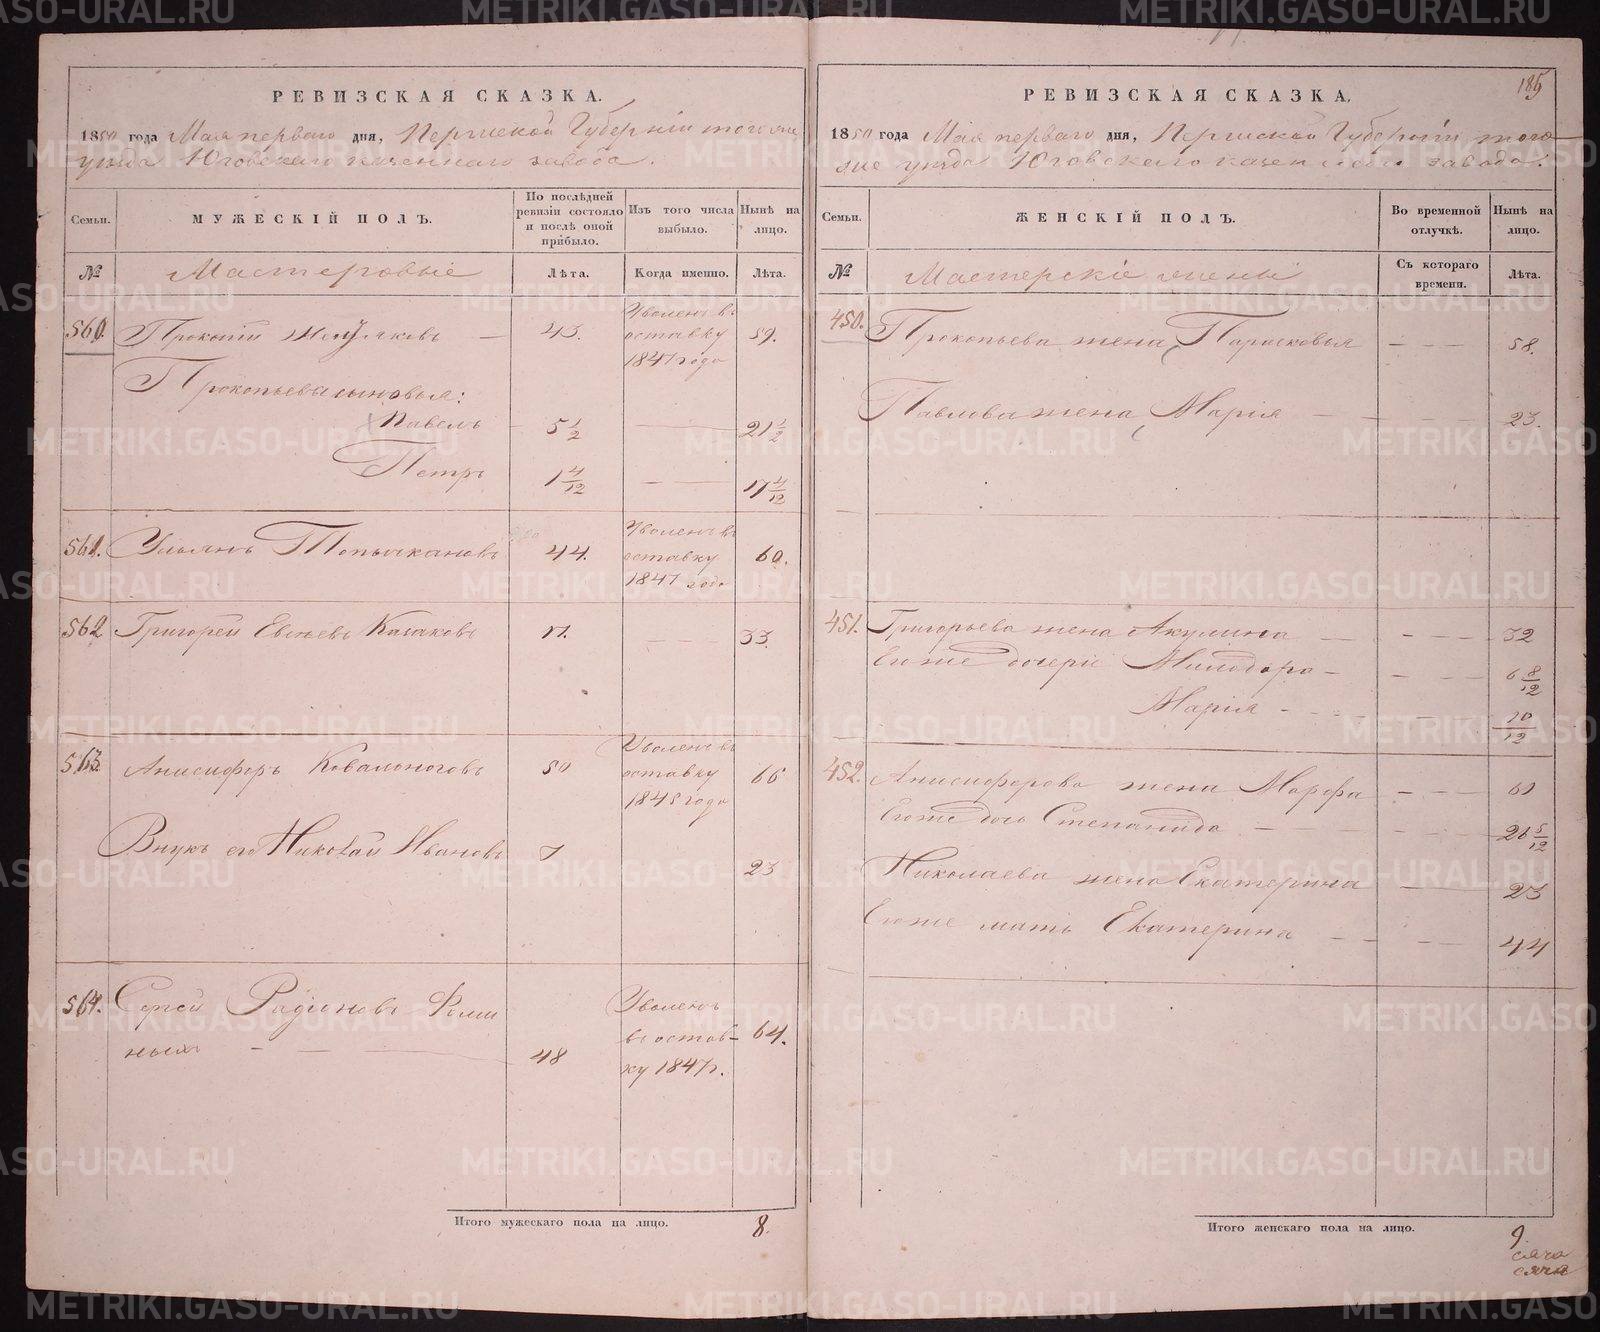 РЕВИЗСКАЯ СКАЗКА.
1850 года Мая перваго дня, Пермской Губернiи того же
уезда Юговскаго казеннаго завода.
Семьи.
МУЖЕСКІЙ ПОЛЪ.
По послѣдней ревизіи состояло и послѣ оной прибыло.
Изъ того числа выбыло.
Нынѣ на лицо.
№
Мастеровые
Лѣта.
Когда именно.
Лѣта.
560. Прокопій — 43. Уволенъ въ отставку 1847 года 59.
Прокопьева сыновья:
Павелъ — 5 1/2 — — 21 1/2
Петръ 1 4/12 — — 17 4/12
561. Ульянъ 44. Уволенъ въ отставку 1847 года 60.
562 Григорей Казаковъ 17. — — 33.
563. Анисифоръ 50 Уволенъ въ отставку 1845 года 66
Внукъ его Николай Ивановъ 7 23
564. Сергей Радіоновъ Фоми
ныхъ — — — 48 Уволенъ въ отстав-ку 1847 г. 64.
Итого мужескаго пола на лицо. 8.
185
РЕВИЗСКАЯ СКАЗКА.
1850 года Мая перваго дня, Пермской Губерніи, того
же уезда Юговскаго казеннаго завода.
Семьи.
ЖЕНСКІЙ ПОЛЪ.
Во временной отлучкѣ.
Нынѣ на лицо.
№
Мастерскіе жены
Съ котораго времени.
Лѣта.
450. Прокопьева жена Парасковья — — — 58.
Павлова жена Марія — — — 23.
451. Григорьева жена Акулина — — — — 32
Его же дочери — — — — 6 8/12
Марія - - - 10/12
452. Анисифорова жена Марфа — — — 61
Его же дочь Степанида — — — — 26 5/12
Николаева жена Екатерина — — — 23
Его же мать Екатерина — — — — 44
Итого женскаго пола на лицо. 9.
METRIKI.GASO-URAL.RU